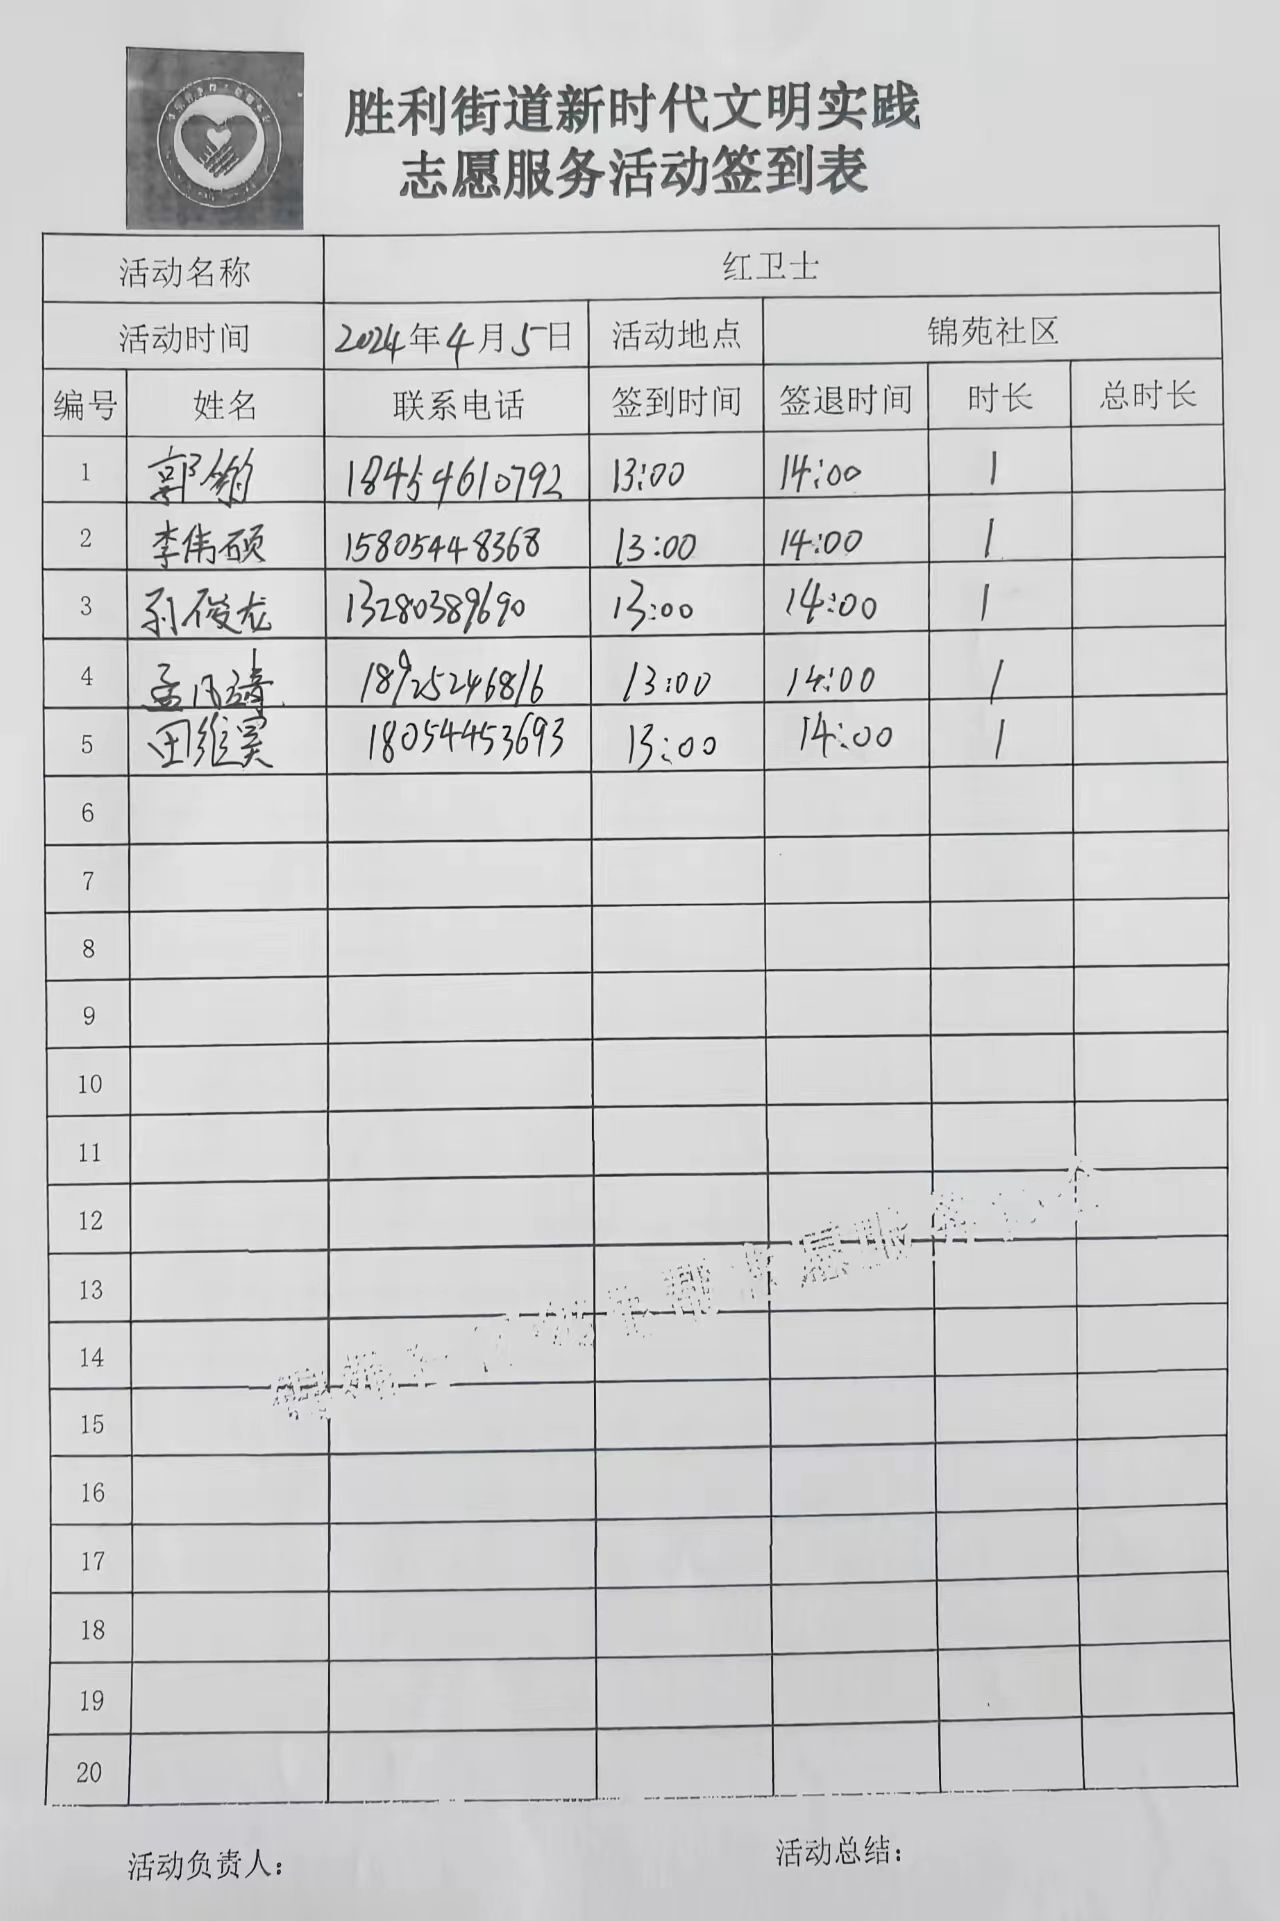 胜利街道新时代文明实践
志愿服务活动签到表
活动名称 红卫士
活动时间 2024年4月5日 活动地点 锦苑社区
编号 姓名 联系电话 签到时间 签退时间 时长 总时长
1 郭 18454610792 13:00 14:00 1
2 李伟硕 15805448368 13:00 14:00 1
3 孙俊龙 13280389690 13:00 14:00 1
4 孟凡 18925246816 13:00 14:00 1
5 田维昊 18054453693 13:00 14:00 1
6
7
8
9
10
11
12
13
14
15
16
17
18
19
20
活动负责人：
活动总结：